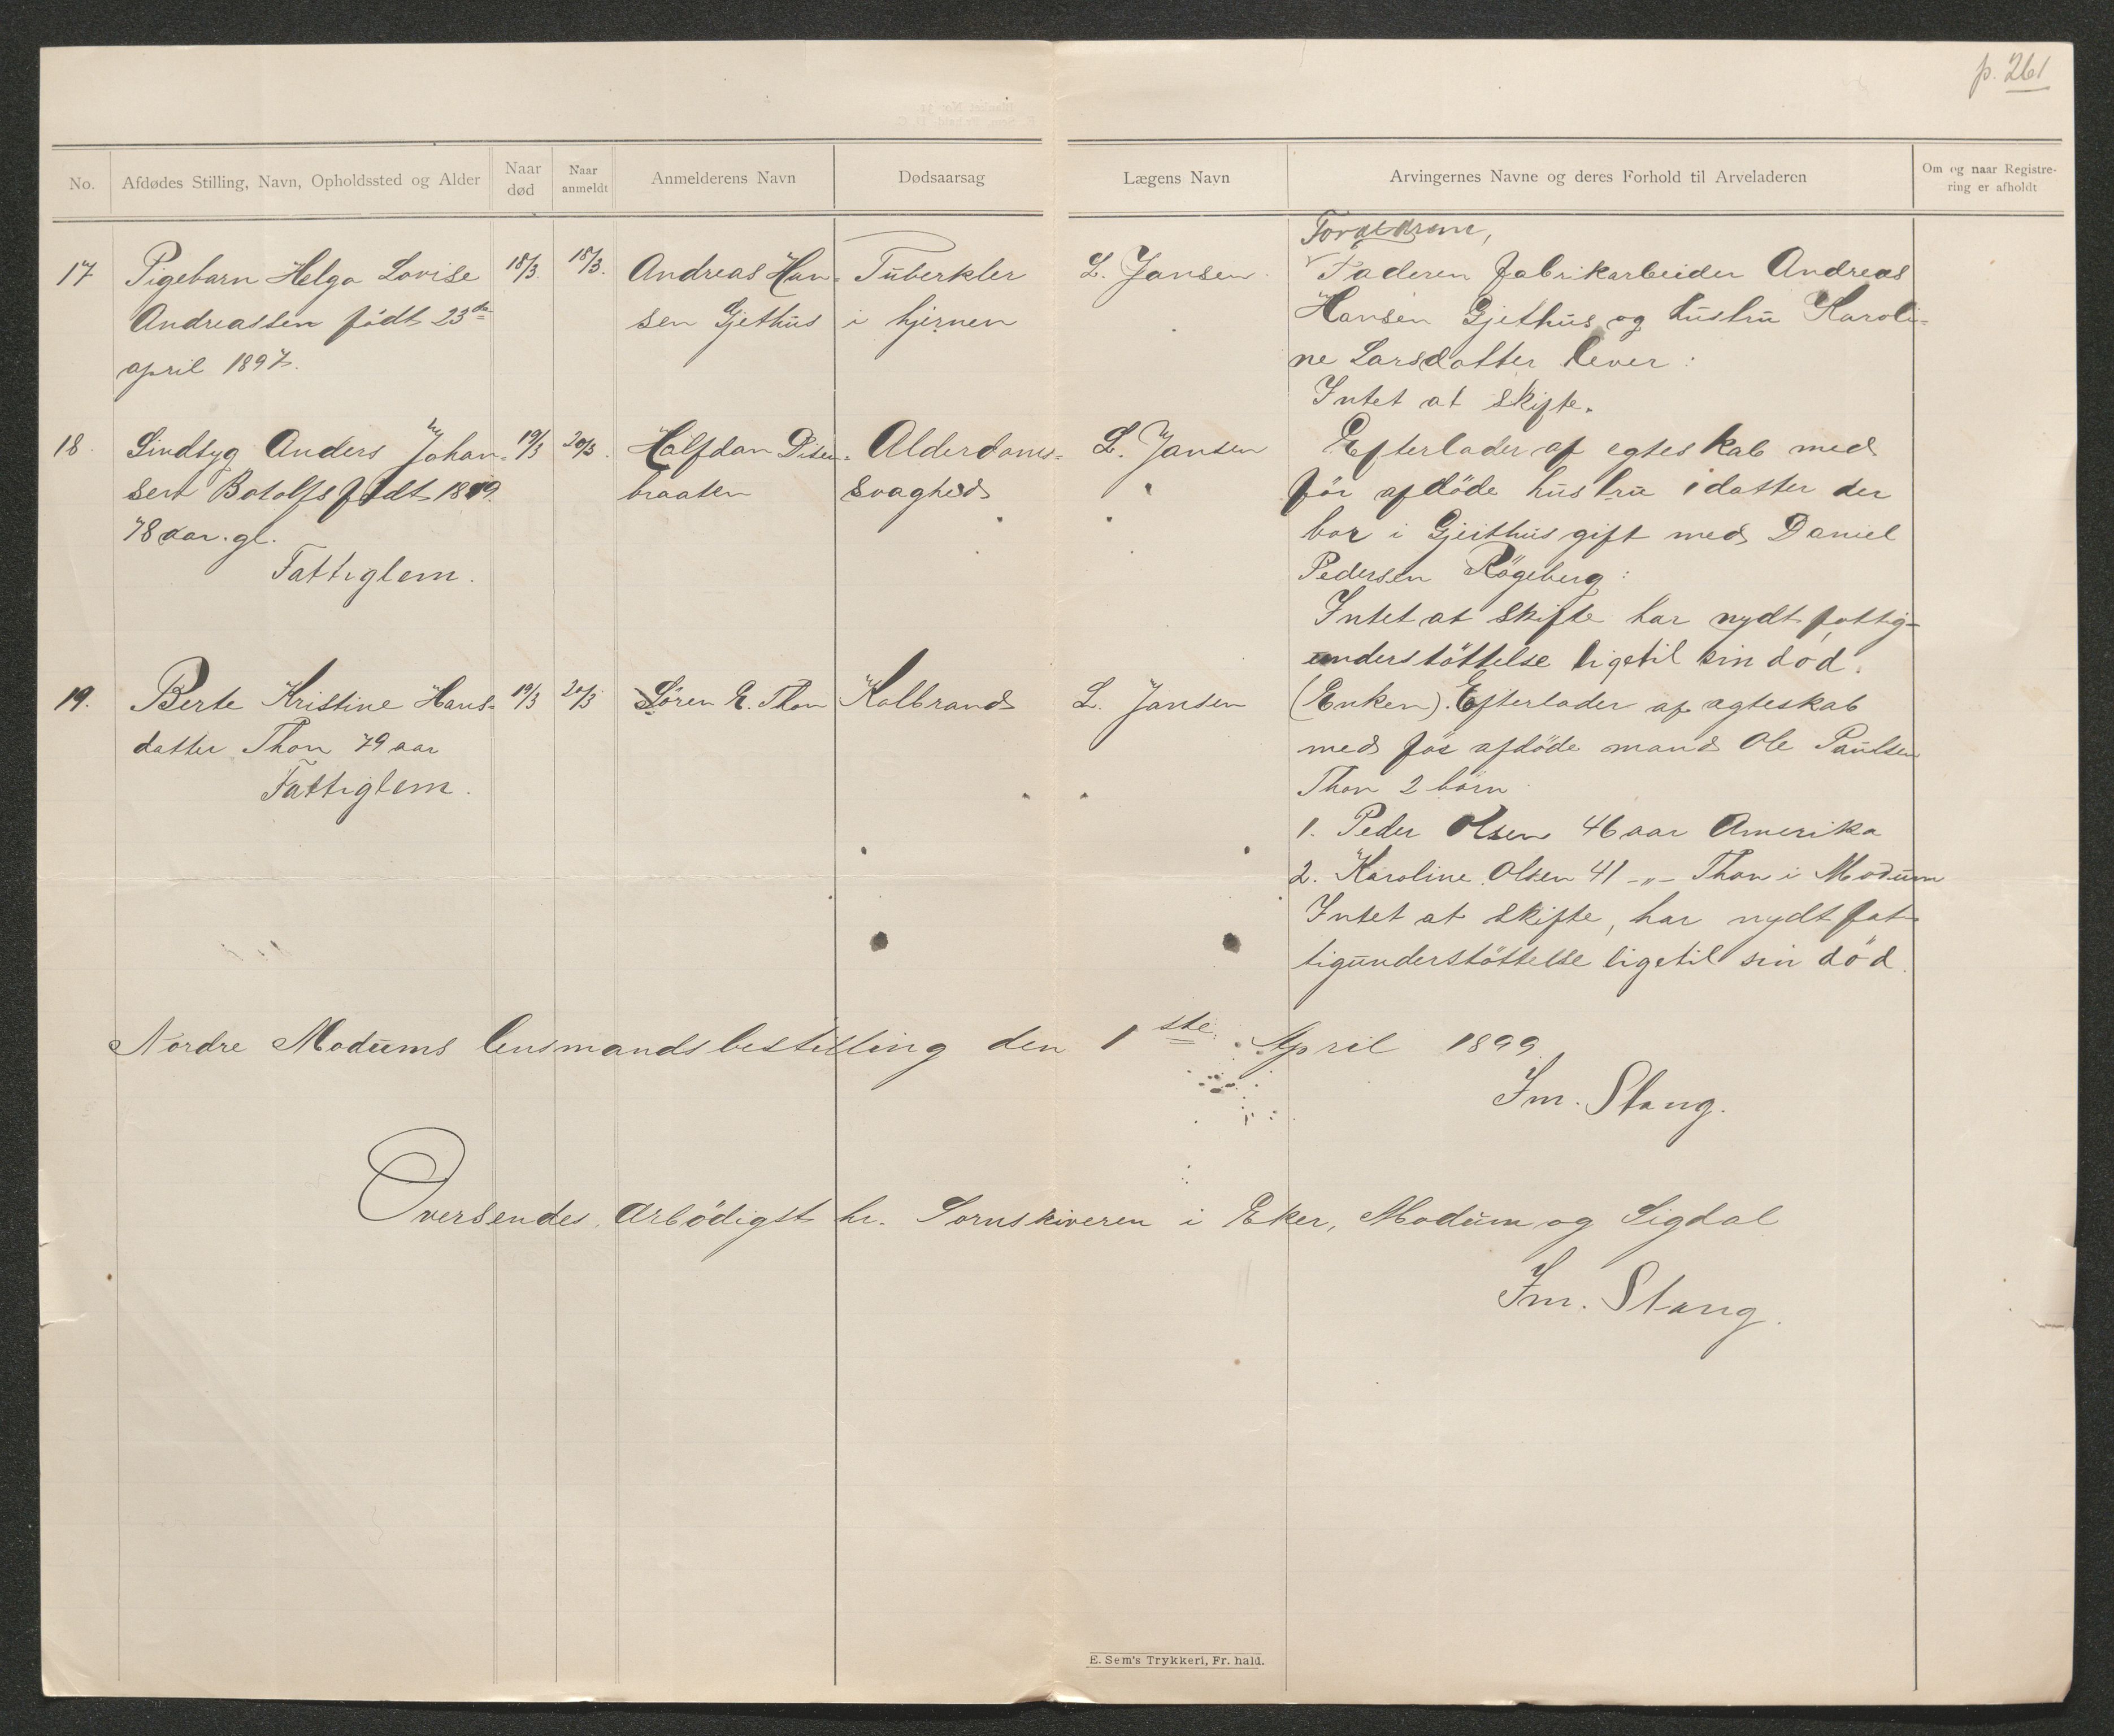 p. 261
No.
Afdødes Stilling, Navn, Opholdssted og Alder
Naar død
Naar anmeldt
Anmelderens Navn
Dødsaarsag
Lægens Navn
Arvingernes Navne og deres Forhold til Arveladeren
Om og naar Registrering er afholdt
17
Pigebarn Helga Lovise
Andreassen født 23de
april 1897.
18/3.
18/3.
Andreas Han-
sen Gjethus
Tuberkler
i hjernen
L. Jansen
Forældrene,
Faderen fabrikarbeider Andreas
Hansen Gjethus og hustru Karoli-
ne Larsdatter lever:
Intet at skifte.
18.
Sindsyg Anders Johan-
sen Botolfs født 1819.
78 aar. gl.
Fattiglem.
19/3
20/3.
Halfdan Disen-
braaten
Alderdoms-
svaghed
L. Jansen
Efterlader af egteskab med
før afdøde hustru 1 datter der
bor i Gjeithus gift med Daniel
Pedersen Røgeberg:
Intet at skifte har nydt fattig-
understøttelse ligetil sin død.
19.
Berte Kristine Hans-
datter Thon 79 aar
Fattiglem.
19/3
20/3
Søren E. Thon
Kolbrand
L. Jansen
(Enken). Efterlader af ægteskab
med før afdøde mand Ole Paulsen
Thon 2 børn
1. Peder Olsen 46 aar Amerika
2. Karoline Olsen 41 -„- Thon i Modum
Intet at skifte, har nydt fat-
tigunderstøttelse ligetil sin død.
Nordre Modums lensmandsbestilling den 1ste April 1899
Im. Stang.
Oversendes ærbødigst hr. Sornskiveren i Eker, Modum og Sigdal
Im. Stang.
E. Sem's Trykkeri, Fr. hald.